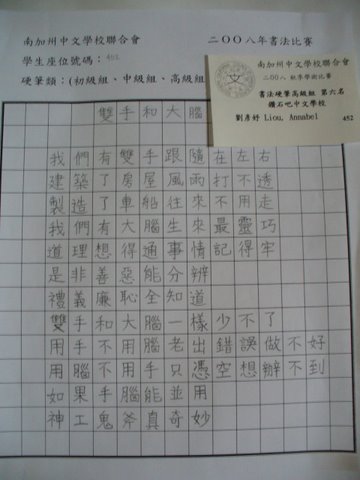 南加州中文學校聯合會 二〇〇八年書法比賽
學生座位號碼：452
硬筆類：(初級組、中級組、高級組
南加州中文學校聯合會
二〇〇八 秋季學術比賽
書法硬筆高級組 第六名
鑽石吧中文學校
劉彥妤 Liou, Annabel 452
雙手和大腦
我們有雙手跟隨在左右
建築了房屋風雨打不透
製造了車船往來不用走
我們有大腦生來最靈巧
道理想得通事情記得牢
是非善惡能分辨
禮義廉恥全知道
雙手和大腦一樣少不了
用手不用腦老出錯誤做不好
用腦不用手只憑空想辦不到
如果手腦能並用
神工鬼斧真奇妙